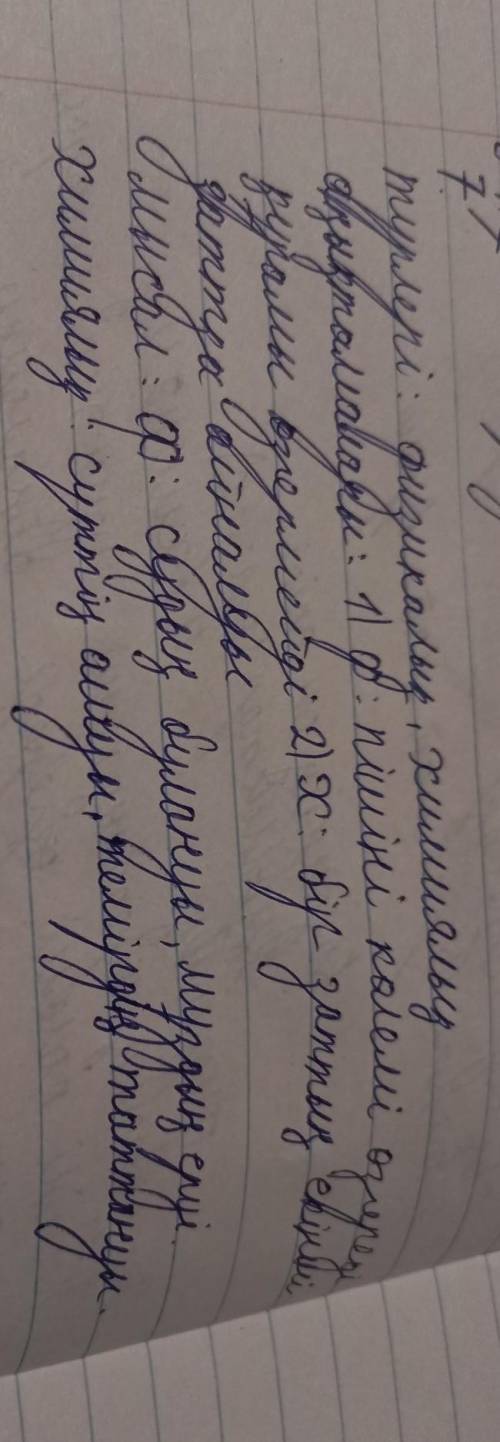 түрлері: физикалық, химиялық
анықтамалары: 1) ф: пішіні көлемі өзгереді
құрамы өзгермейді 2) х: бір заттың екінші
затқа айналуы
мысал: ф: судың булануы, мұздың еруі.
химиялық: сүттің ашуы, темірдің таттануы.